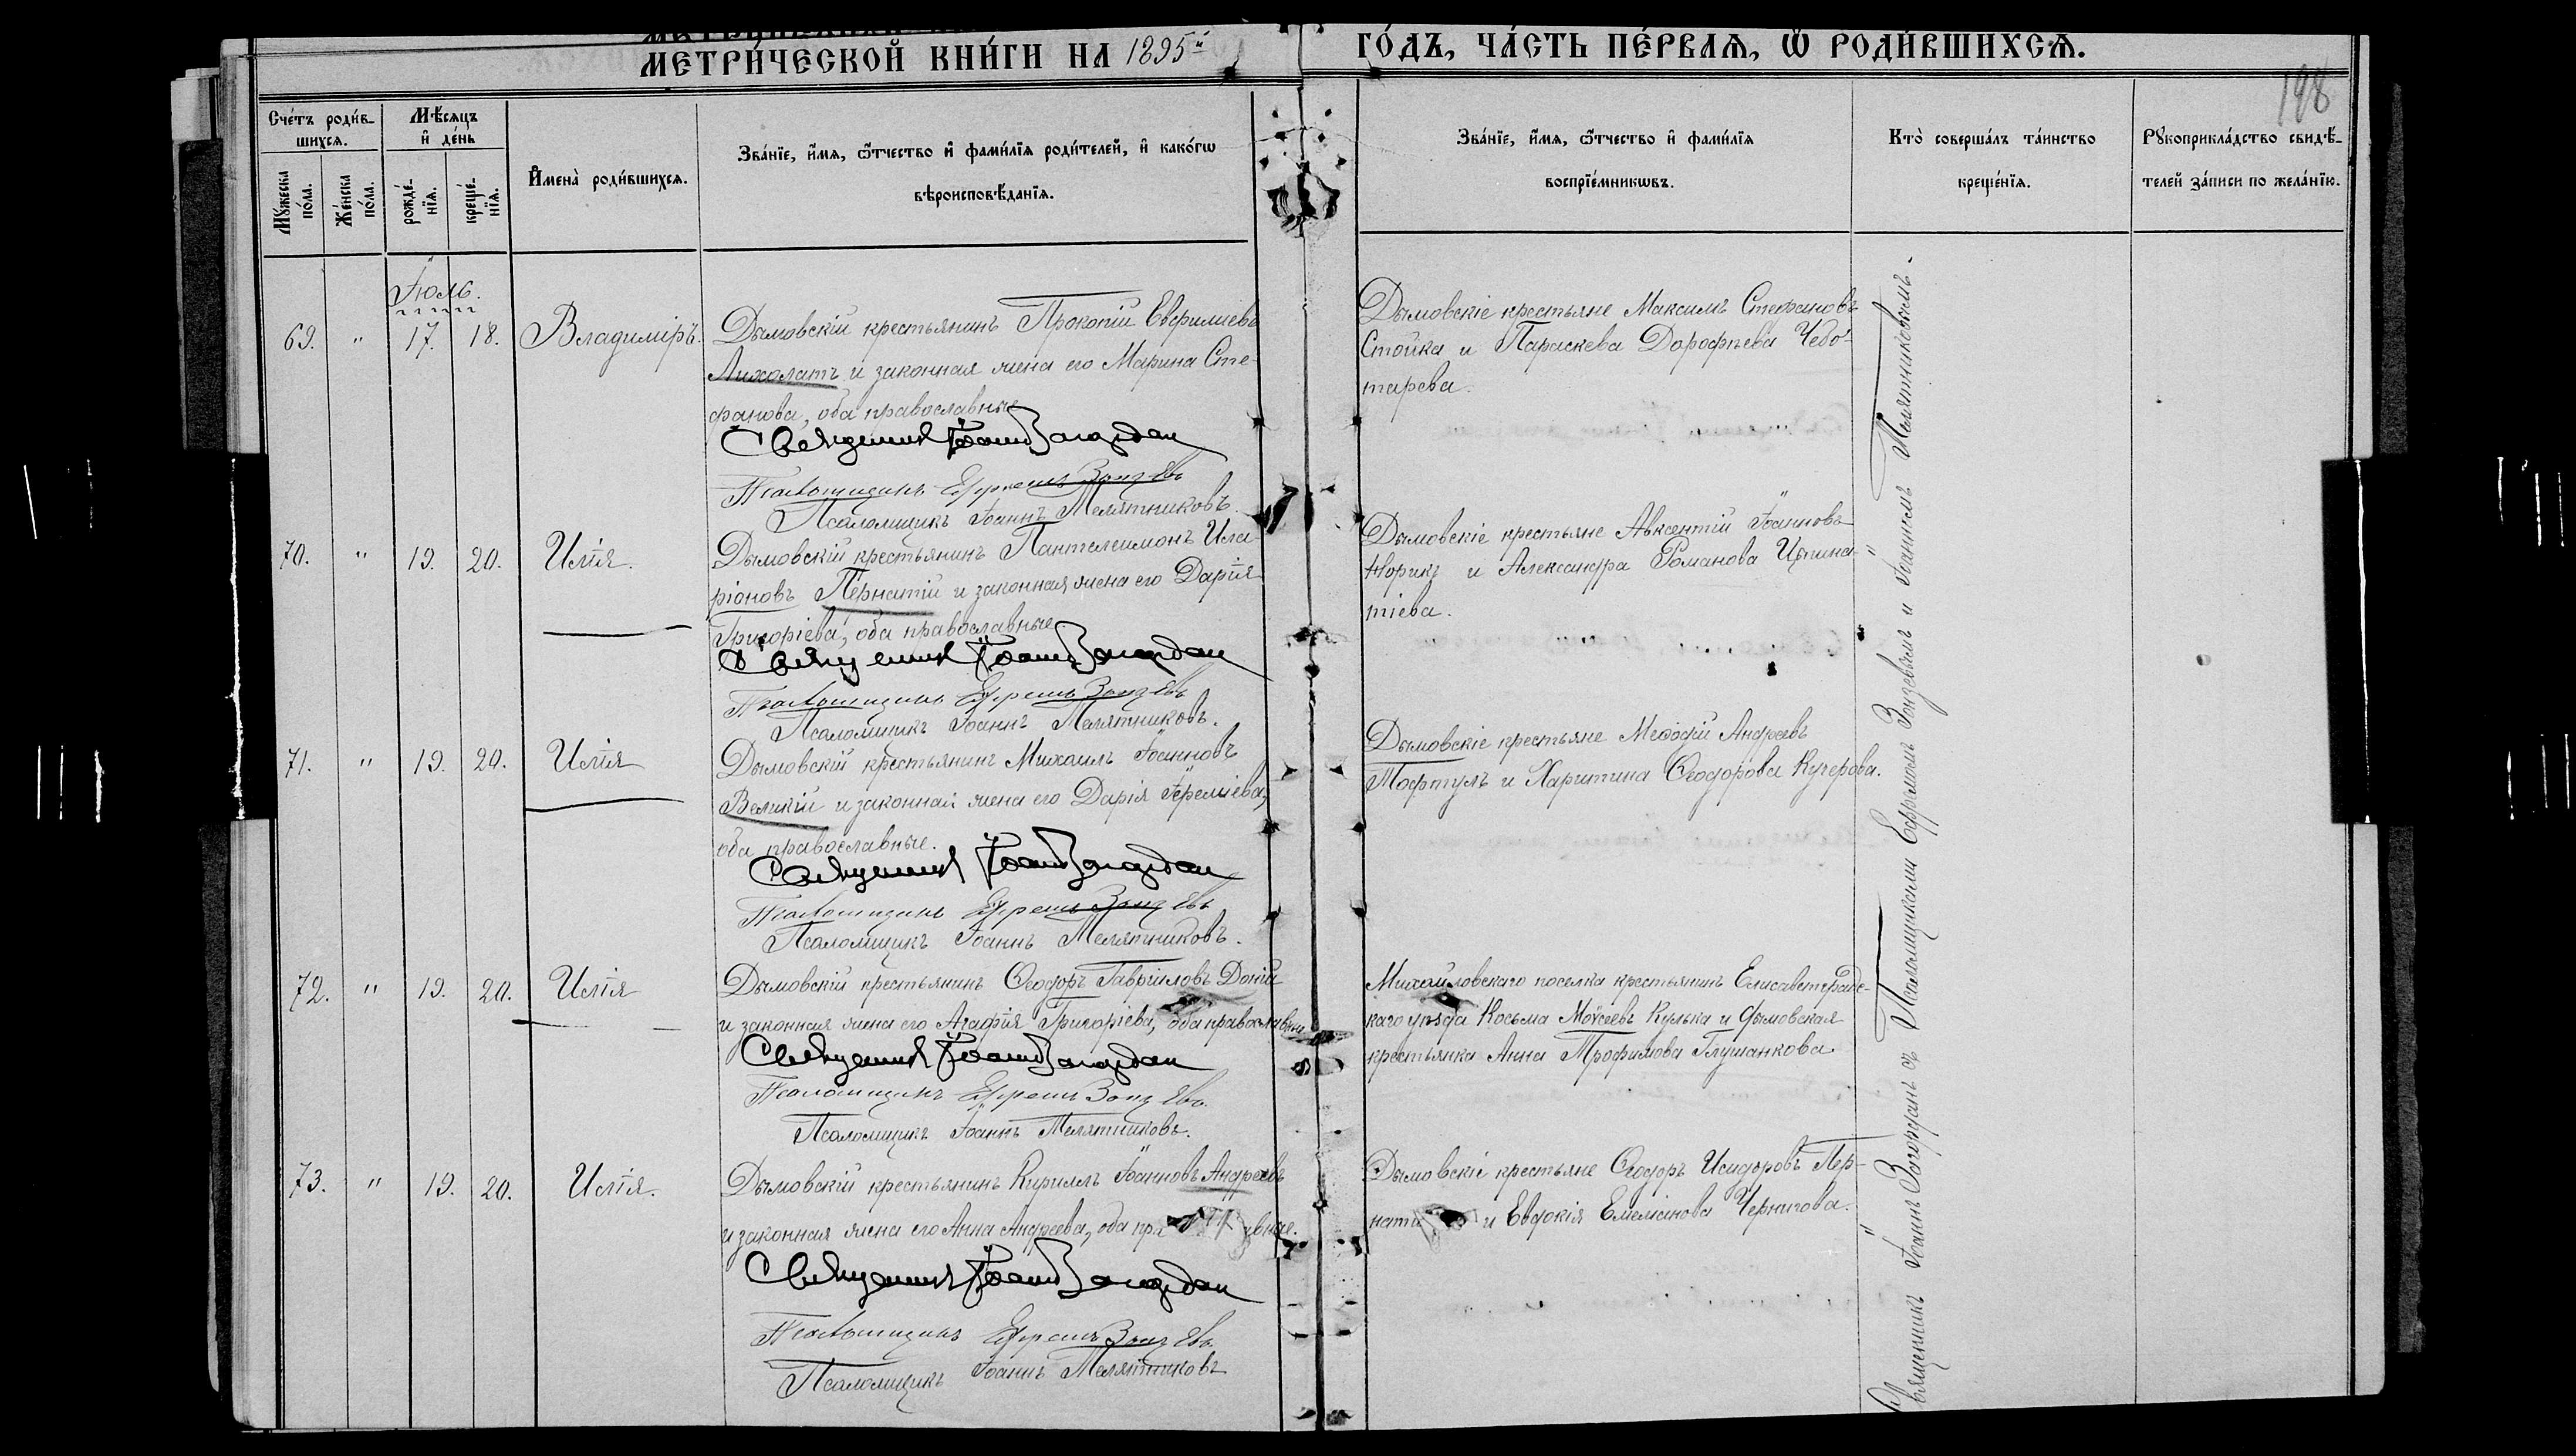 МЕТРИ́ЧЕСКОЙ КНИ́ГИ НА 1895й ГО́ДЪ, ЧА́СТЬ ПЕ́РВАѦ, Ѿ РОДИ́ВШИХСѦ.
198
Сче́тъ роди́в-
шихсѧ.
Мѣ́сѧцъ
и҆ де́нь
Мꙋ́жеска
по́ла.
Же́нска
по́ла.
рожде́-
нїѧ.
креще́-
нїѧ.
И҆мена̀ роди́вшихсѧ.
Зва́нїе, и҆́мѧ, ѻ҆́тчество и҆ фами́лїѧ роди́телей, и҆ како́гѡ
вѣроисповѣ́данїѧ.
Зва́нїе, и҆́мѧ, ѻ҆́тчество и҆ фами́лїѧ
воспрїе́мникѡвъ.
Кто̀ соверша́лъ та́инство
креще́нїѧ.
Рꙋкоприкла́дство свидѣ́-
телей за́писи по жела́нїю.
Іюль.
69. " 17. 18. Владиміръ.
Дымовскій крестьянинъ Прокопій Евфиміевъ
Лихолатъ и законная жена его Марина Сте-
фанова, оба православные
Священникъ Іоаннъ Загордан
Псаломщикъ Ефремъ Зонзевъ
Псаломщикъ Іоаннъ Мелятниковъ.
Дымовскіе крестьяне Максимъ Стефановъ
Стойка и Параскева Дорофѣева Чебо-
тарева.
70. " 19. 20. Илія.
Дымовскій крестьянинъ Пантелеимонъ Ила-
ріоновъ Пернатій и законная жена его Дарія
Григоріева, оба православные.
Священникъ Іоаннъ Загордан
Псаломщикъ Ефремъ Зонзевъ
Псаломщикъ Іоаннъ Мелятниковъ.
Дымовскіе крестьяне Авксентій Іоанновъ
и Александра Романова
тіева.
71. " 19. 20. Илія
Дымовскій крестьянинъ Михаилъ Іоанновъ
Великій и законная жена его Дарія Іереміева,
оба православные.
Священникъ Іоаннъ Загордан
Псаломщикъ Ефремъ Зонзевъ
Псаломщикъ Іоаннъ Мелятниковъ.
Дымовскіе крестьяне Меѳодій Андреевъ
Тофтулъ и Харитина Ѳеодорова Кучерова.
72. " 19. 20. Илія
Дымовскій крестьянинъ Ѳеодоръ Гавріиловъ Доній
и законная жена его Агафія Григоріева, оба православные
Священникъ Іоаннъ Загордан
Псаломщикъ Ефремъ Зонзевъ.
Псаломщикъ Іоаннъ Мелятниковъ.
Михайловскаго поселка крестьянинъ Елисаветградс-
каго уѣзда Косьма Моѵсеевъ Кулька и Дымовская
крестьянка Анна Трофимова Глушанкова.
73. " 19. 20. Илія.
Дымовскій крестьянинъ Кириллъ Іоанновъ Андреевъ
и законная жена его Анна Андреева, оба пра вные.
Священникъ Іоаннъ Загордан
Псаломщикъ Ефремъ Зонзевъ
Псаломщикъ Іоаннъ Мелятниковъ
Дымовскіе крестьяне Ѳеодоръ Исидоровъ Пер-
нати и Евдокія Емеліанова Чернигова.
Священникъ Іоаннъ Загорданъ съ Псаломщиками Ефремомъ Зонзевымъ и Іоанномъ Мелятниковымъ.